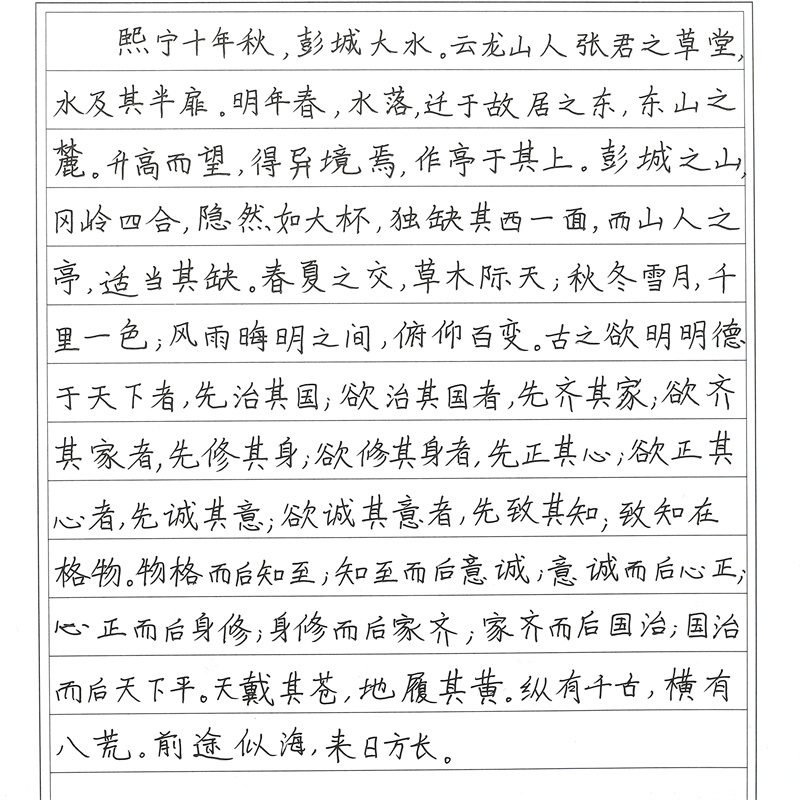 熙宁十年秋,彭城大水。云龙山人张君之草堂,
水及其半扉。明年春,水落,迁于故居之东,东山之
麓。升高而望,得异境焉,作亭于其上。彭城之山,
冈岭四合,隐然如大杯,独缺其西一面,而山人之
亭,适当其缺。春夏之交,草木际天;秋冬雪月,千
里一色;风雨晦明之间,俯仰百变。古之欲明明德
于天下者,先治其国;欲治其国者,先齐其家;欲齐
其家者,先修其身;欲修其身者,先正其心;欲正其
心者,先诚其意;欲诚其意者,先致其知;致知在
格物。物格而后知至;知至而后意诚;意诚而后心正;
心正而后身修;身修而后家齐;家齐而后国治;国治
而后天下平。天戴其苍,地履其黄。纵有千古,横有
八荒。前途似海,来日方长。